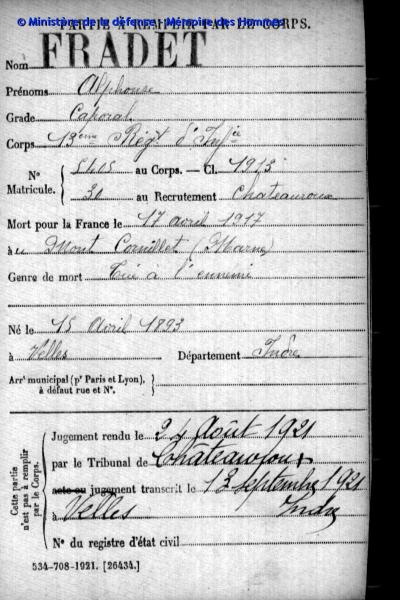 PARTIE À REMPLIR PAR LE CORPS.
© Ministère de la défense - Mémoire des Hommes
FRADET
Nom
Prénoms Alphonse
Grade Caporal
Corps 13ème Régt d'Infie
N° Matricule. { 5405 au Corps. — Cl. 1913
30 au Recrutement Chateauroux
Mort pour la France le 17 avril 1917
à au Mont Cornillet (Marne)
Genre de mort Tué à l'ennemi
Né le 15 Avril 1893
à Velles Département Indre
Arrt municipal (pr Paris et Lyon), à défaut rue et N°.
Cette partie n'est pas à remplir par le Corps.
Jugement rendu le 24 Août 1921
par le Tribunal de Chateauroux
acte ou jugement transcrit le 13 septembre 1921
à Velles Indre
N° du registre d'état civil
534-708-1921. [26434.]